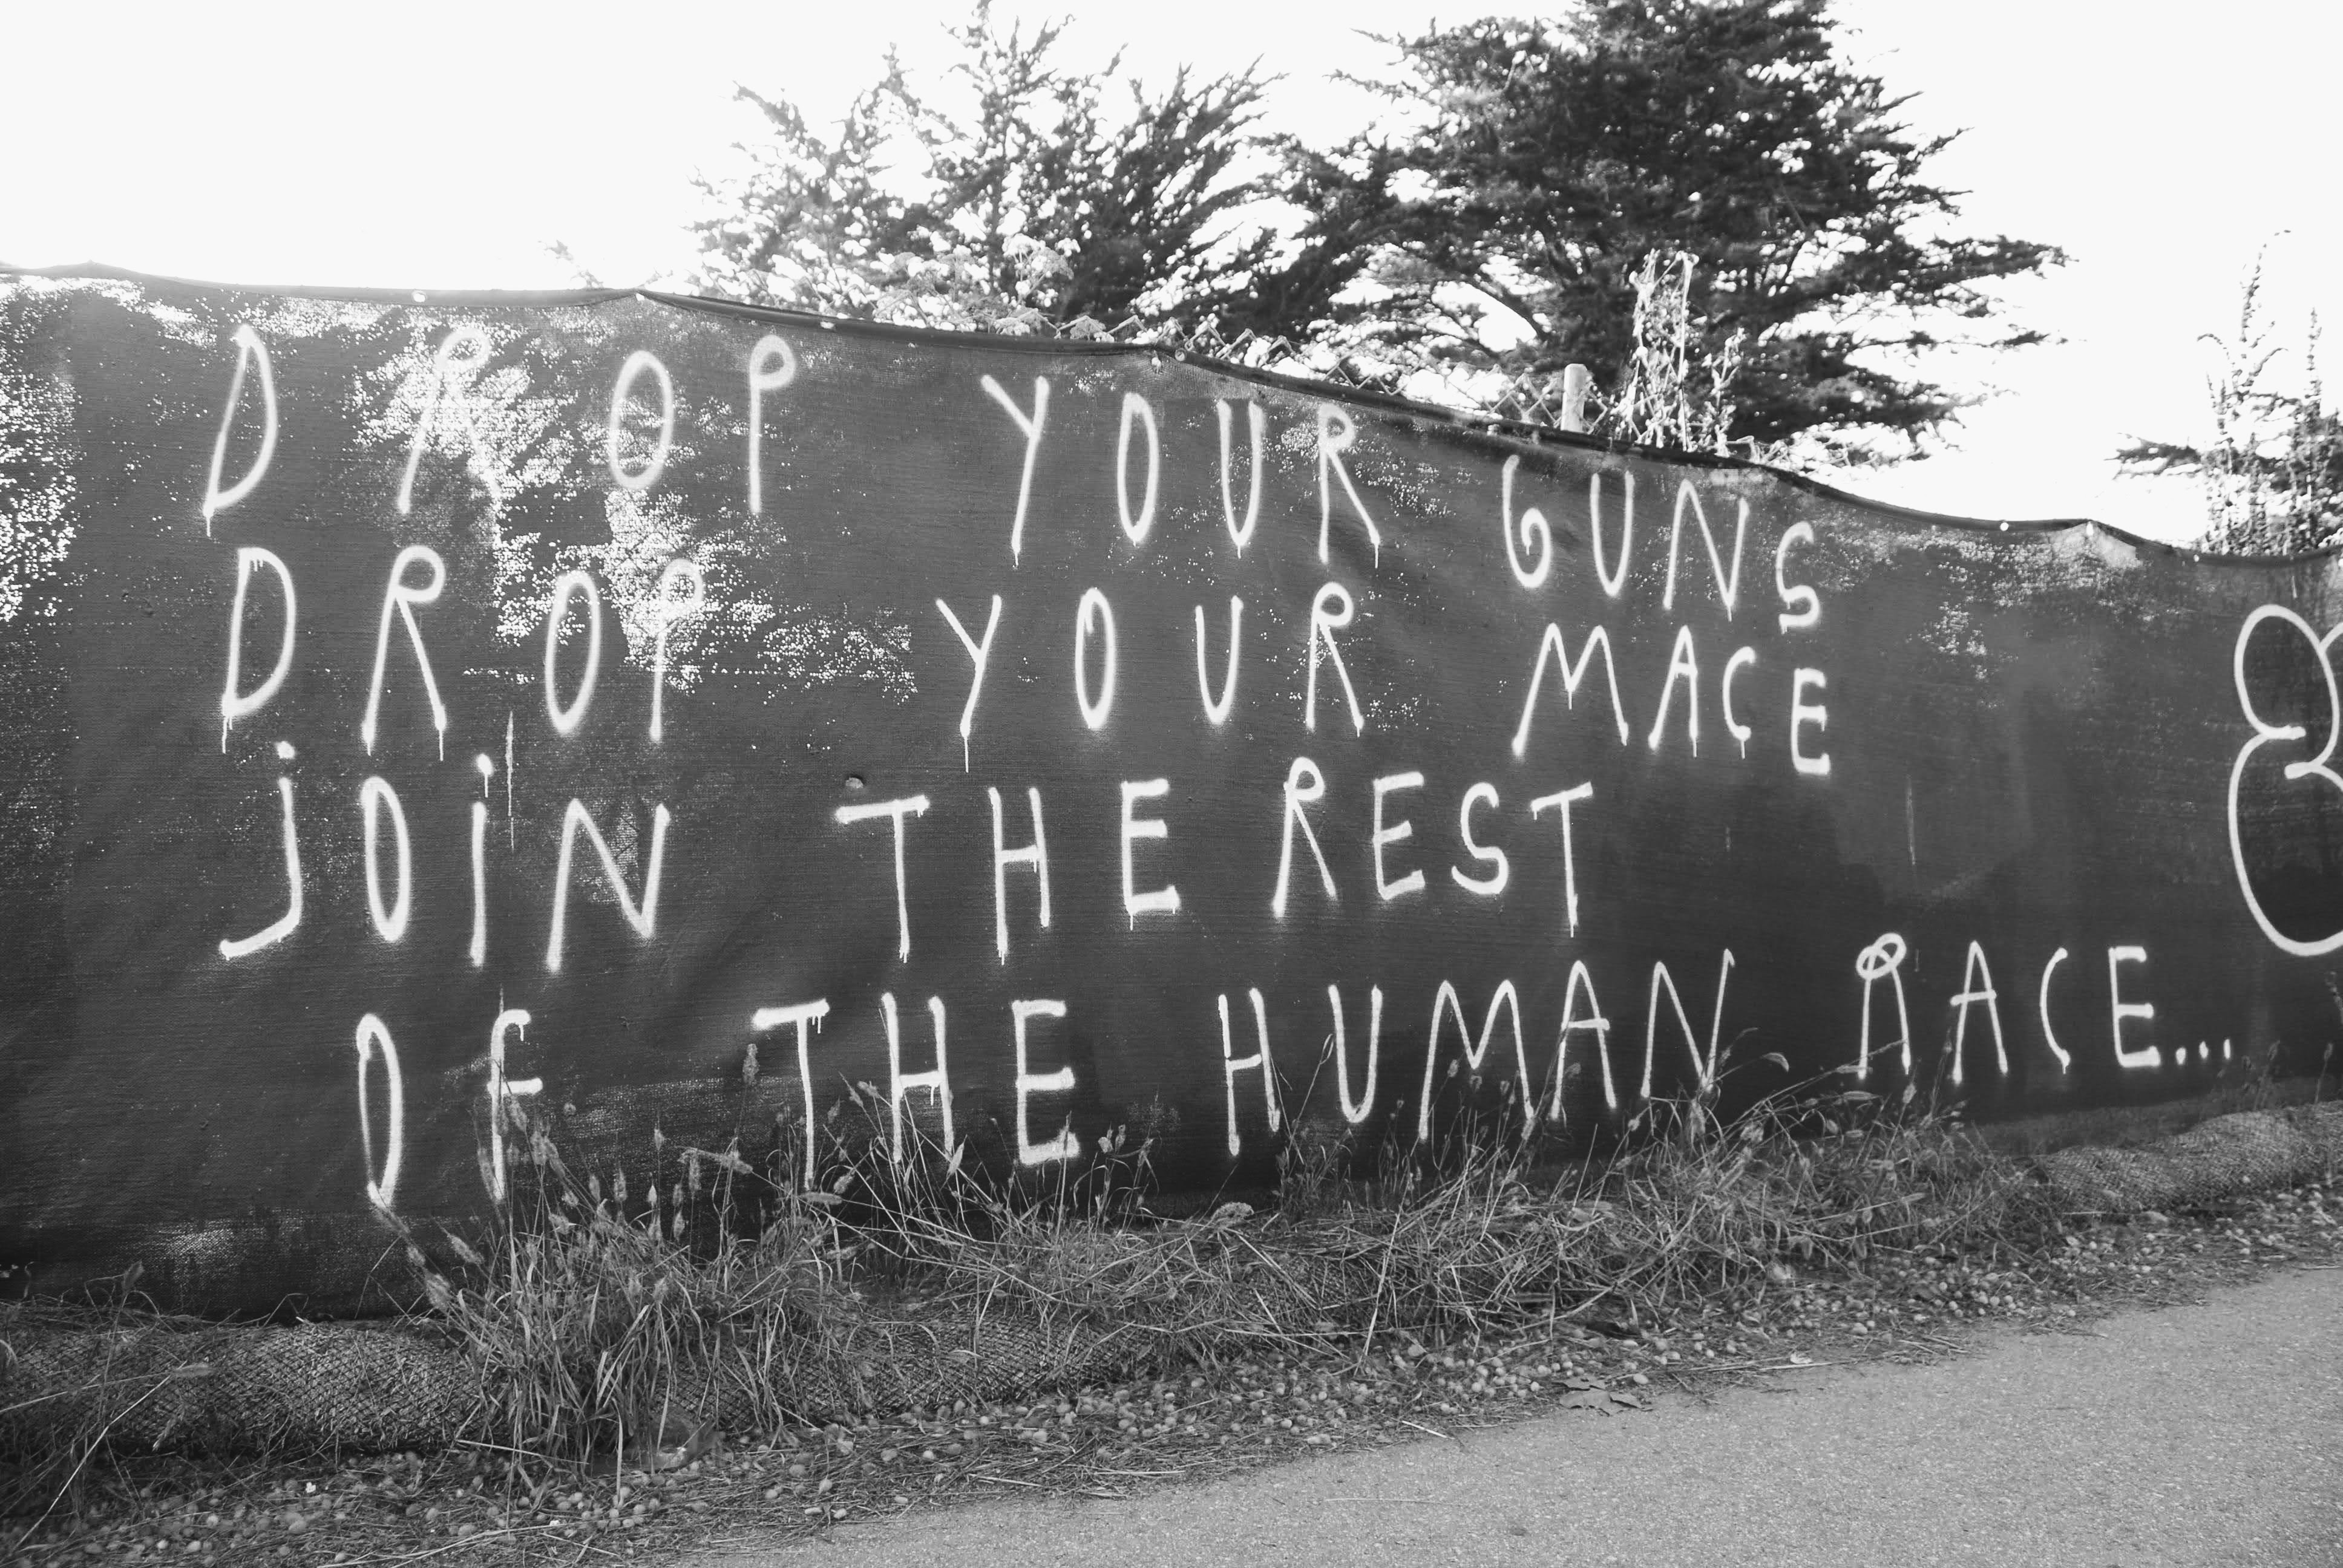 DROP YOUR GUNS
DROP YOUR MACE
jOiN THE REST
OF THE HUMAN RACE...